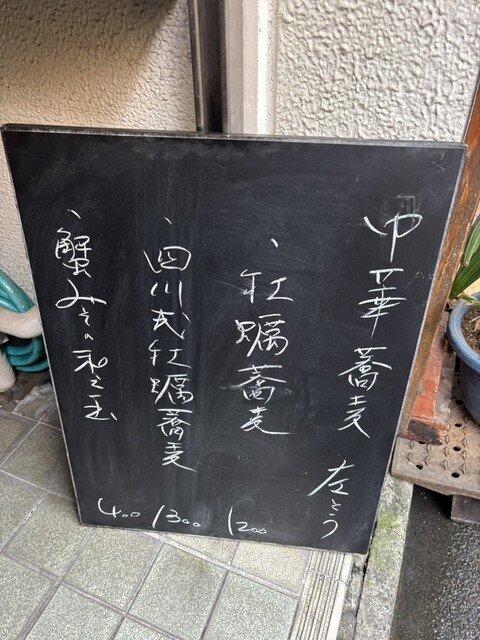 中華蕎麦 左とう
、牡蠣蕎麦 1200
、四川式牡蠣蕎麦 1300
、蟹みその和え玉 400